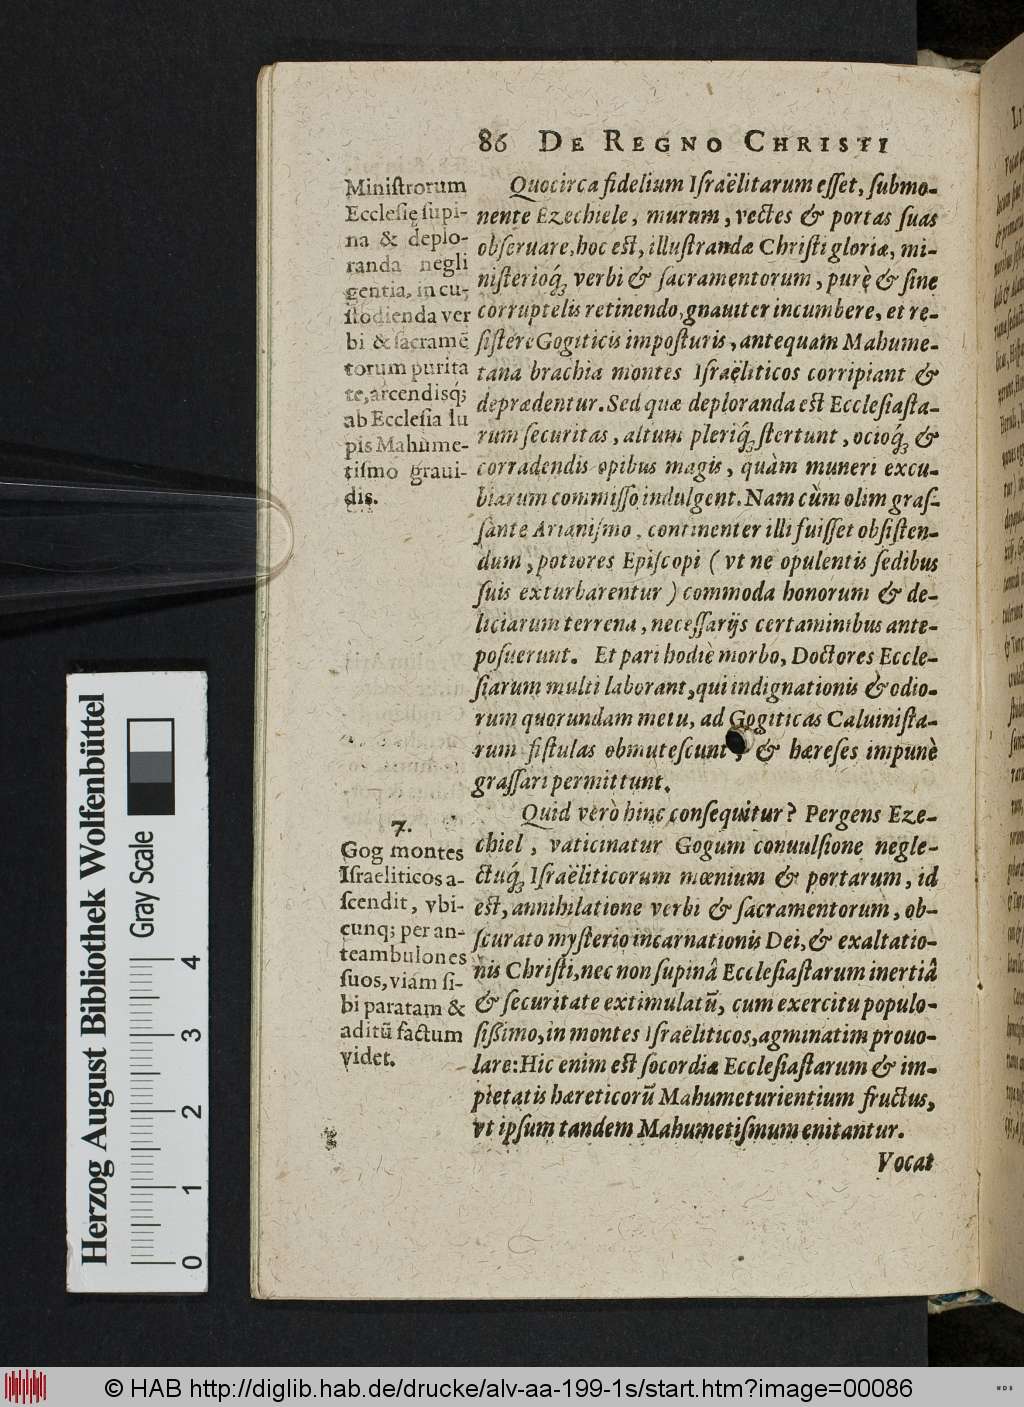 86 DE REGNO CHRISTI
Miniſtrorum
Ecclesię ſupi-
na & deplo-
randa negli
gentia, in cu-
ſtodienda ver
bi & ſacramē
torum purita
te, arcendisq́;
ab Ecclesia lu
pis Mahume-
tiſmo graui-
dis.
Quocirca fidelium Iſraëlitarum eſſet, ſubmo-
nente Ezechiele, murum, vectes & portas ſuas
obſeruare, hoc est, illuſtrandæ Chriſti gloriæ, mi-
niſterioq́; verbi & ſacramentorum, purè & ſine
corruptelis retinendo, gnauiter incumbere, et re-
ſiſtere Gogiticis impoſturis, antequam Mahume-
tana brachia montes Iſraëliticos corripiant &
deprædentur. Sed quæ deploranda est Eccleſiaſta-
rum ſecuritas, altum pleriq́; ſtertunt, ocioq́; &
corradendis opibus magis, quàm muneri excu-
biarum commiſſo indulgent. Nam cùm olim graſ-
ſante Arianiſmo, continenter illi fuiſſet obſiſten-
dum, potiores Epiſcopi (vt ne opulentis ſedibus
ſuis exturbarentur) commoda honorum & de-
liciarum terrena, neceſſarijs certaminibus ante-
poſuerunt. Et pari hodiè morbo, Doctores Eccle-
ſiarum multi laborant, qui indignationis & odio-
rum quorundam metu, ad Gogiticas Caluiniſta-
rum fiſtulas obmuteſcunt, & hæreſes impunè
graſſari permittunt.
7.
Gog montes
Iſraeliticos a-
ſcendit, vbi-
cunq; per an-
teambulones
ſuos, viam ſi-
bi paratam &
aditū factum
videt.
Quid verò hinc conſequitur? Pergens Eze-
chiel, vaticinatur Gogum conuulſione negle-
ctuq́; Iſraëliticorum mœnium & portarum, id
est, annihilatione verbi & ſacramentorum, ob-
ſcurato myſterio incarnationis Dei, & exaltatio-
nis Chriſti, nec non ſupinâ Eccleſiaſtarum inertiâ
& ſecuritate extimulatū, cum exercitu populo-
ſiſſimo, in montes Iſraëliticos, agminatim prouo-
lare: Hic enim est ſocordiæ Eccleſiaſtarum & im-
pietatis hæreticorū Mahumeturientium fructus,
vt ipſum tandem Mahumetiſmum enitantur.
Vocat
Herzog August Bibliothek Wolfenbüttel
Gray Scale
0 1 2 3 4
© HAB http://diglib.hab.de/drucke/alv-aa-199-1s/start.htm?image=00086